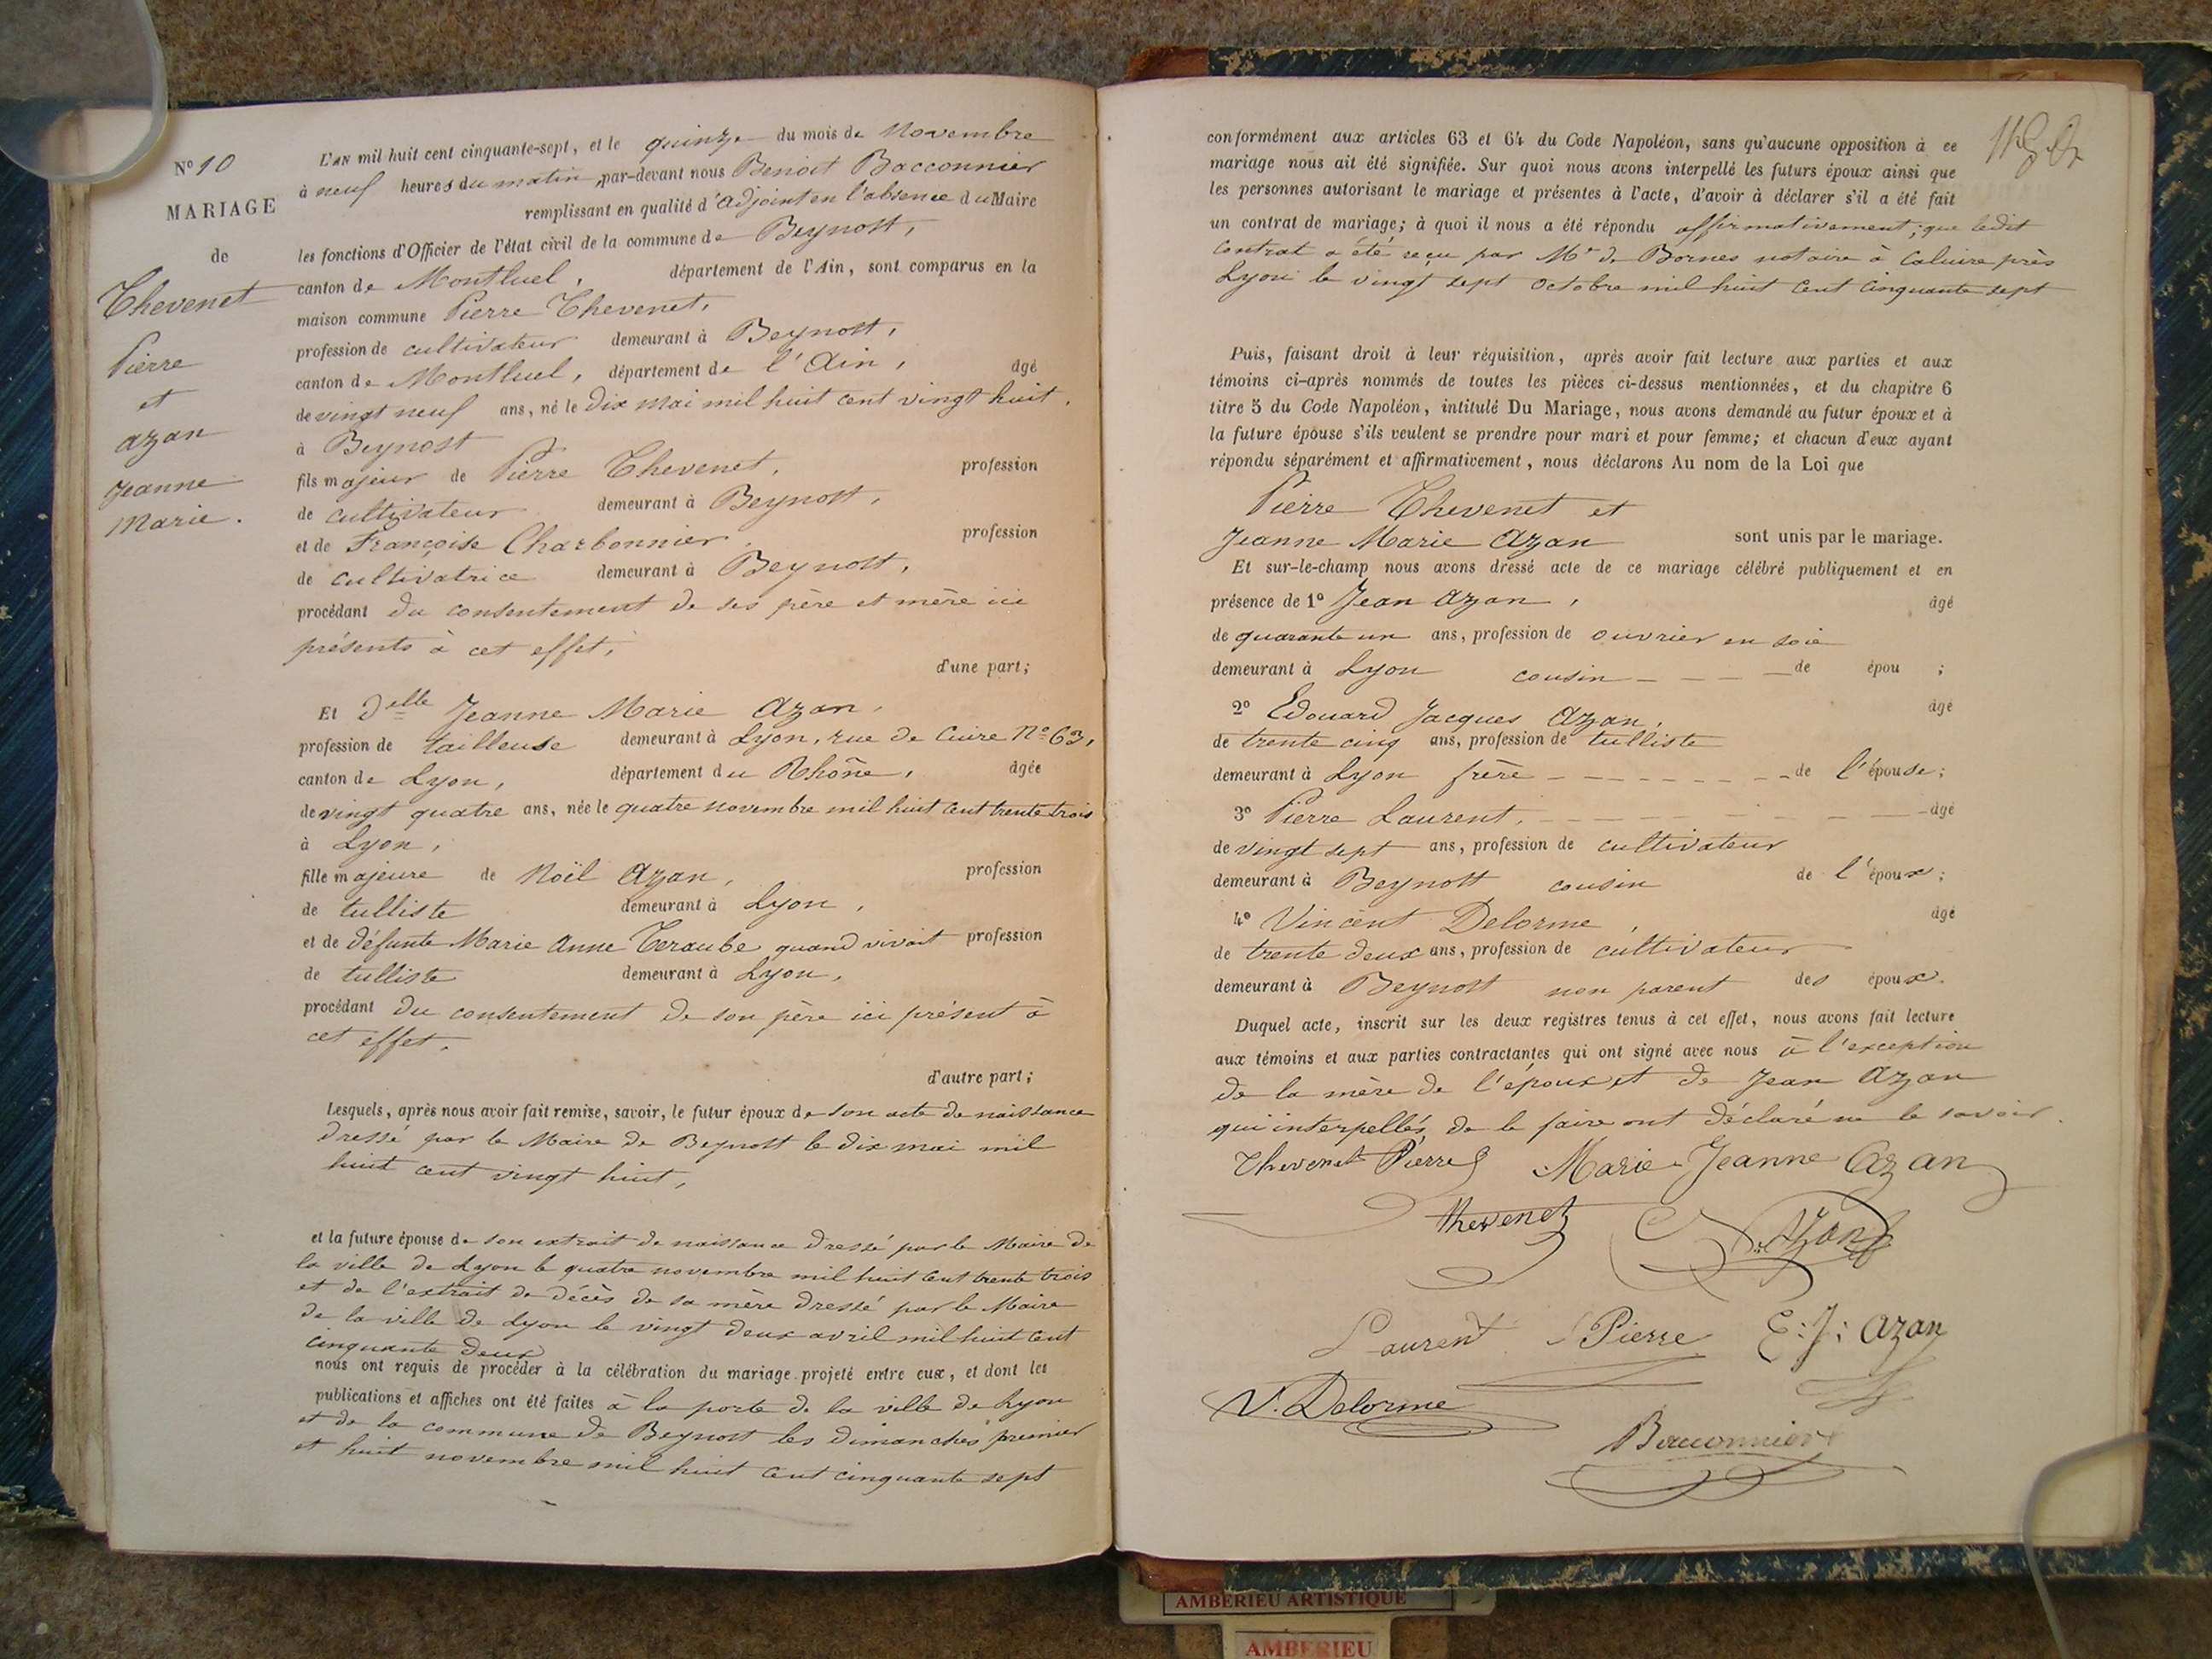 N° 10
MARIAGE
de
Thevenet
Pierre
et
Azan
Jeanne
Marie.
L'AN mil huit cent cinquante-sept, et le quinze du mois de Novembre
à neuf heures du matin, par-devant nous Benoit Bacconnier
remplissant en qualité d'adjoint en l'absence du Maire
les fonctions d'Officier de l'état civil de la commune de Beynost,
canton de Montluel, département de l'Ain, sont comparus en la
maison commune Pierre Thevenet,
profession de cultivateur demeurant à Beynost,
canton de Montluel, département de l'Ain, âgé
de vingt neuf ans, né le dix mai mil huit cent vingt huit,
à Beynost
fils majeur de Pierre Thevenet, profession
de cultivateur demeurant à Beynost,
et de Françoise Charbonnier, profession
de cultivatrice demeurant à Beynost,
procédant du consentement de ses père et mère ici
présents à cet effet,
d'une part;
Et Delle Jeanne Marie Azan,
profession de tailleuse demeurant à Lyon, rue de Cuire N° 63,
canton de Lyon, département du Rhône, âgée
de vingt quatre ans, née le quatre novembre mil huit cent trente trois
à Lyon,
fille majeure de Noël Azan, profession
de tulliste demeurant à Lyon,
et de défunte Marie Anne Teraube quand vivait profession
de tulliste demeurant à Lyon,
procédant du consentement de son père ici présent à
cet effet,
d'autre part;
Lesquels, après nous avoir fait remise, savoir, le futur époux de son acte de naissance
dressé par le Maire de Beynost le dix mai mil
huit cent vingt huit,
et la future épouse de son extrait de naissance dressé par le Maire de
la ville de Lyon le quatre novembre mil huit cent trente trois
et de l'extrait de décès de sa mère dressé par le Maire
de la ville de Lyon le vingt deux avril mil huit cent
cinquante deux
nous ont requis de procéder à la célébration du mariage projeté entre eux, et dont les
publications et affiches ont été faites à la porte de la ville de Lyon
et de la commune de Beynost les dimanches premier
et huit novembre mil huit cent cinquante sept
conformément aux articles 63 et 64 du Code Napoléon, sans qu'aucune opposition à ce
mariage nous ait été signifiée. Sur quoi nous avons interpellé les futurs époux ainsi que
les personnes autorisant le mariage et présentes à l'acte, d'avoir à déclarer s'il a été fait
un contrat de mariage; à quoi il nous a été répondu affirmativement; que ledit
contrat a été reçu par Me de Bornes notaire à Caluire près
Lyon le vingt sept octobre mil huit cent cinquante sept
Puis, faisant droit à leur réquisition, après avoir fait lecture aux parties et aux
témoins ci-après nommés de toutes les pièces ci-dessus mentionnées, et du chapitre 6
titre 5 du Code Napoléon, intitulé Du Mariage, nous avons demandé au futur époux et à
la future épouse s'ils veulent se prendre pour mari et pour femme; et chacun d'eux ayant
répondu séparément et affirmativement, nous déclarons Au nom de la Loi que
Pierre Thevenet et
Jeanne Marie Azan sont unis par le mariage.
Et sur-le-champ nous avons dressé acte de ce mariage célébré publiquement et en
présence de 1° Jean Azan, âgé
de quarante un ans, profession de ouvrier en soie
demeurant à Lyon cousin de épou ;
2° Edouard Jacques Azan, âgé
de trente cinq ans, profession de tulliste
demeurant à Lyon frère de l'épouse;
3° Pierre Laurent, âgé
de vingt sept ans, profession de cultivateur
demeurant à Beynost cousin de l'époux;
4° Vincent Delorme, âgé
de trente deux ans, profession de cultivateur
demeurant à Beynost non parent des époux.
Duquel acte, inscrit sur les deux registres tenus à cet effet, nous avons fait lecture
aux témoins et aux parties contractantes qui ont signé avec nous à l'exception
de la mère de l'époux et de Jean Azan
qui interpellés de le faire ont déclaré ne le savoir.
Thevenet Pierre Marie Jeanne Azan
thevenet Azan
Laurent Pierre E: J: Azan
V. Delorme
Bacconnier
AMBERIEU ARTISTIQUE
AMBERIEU